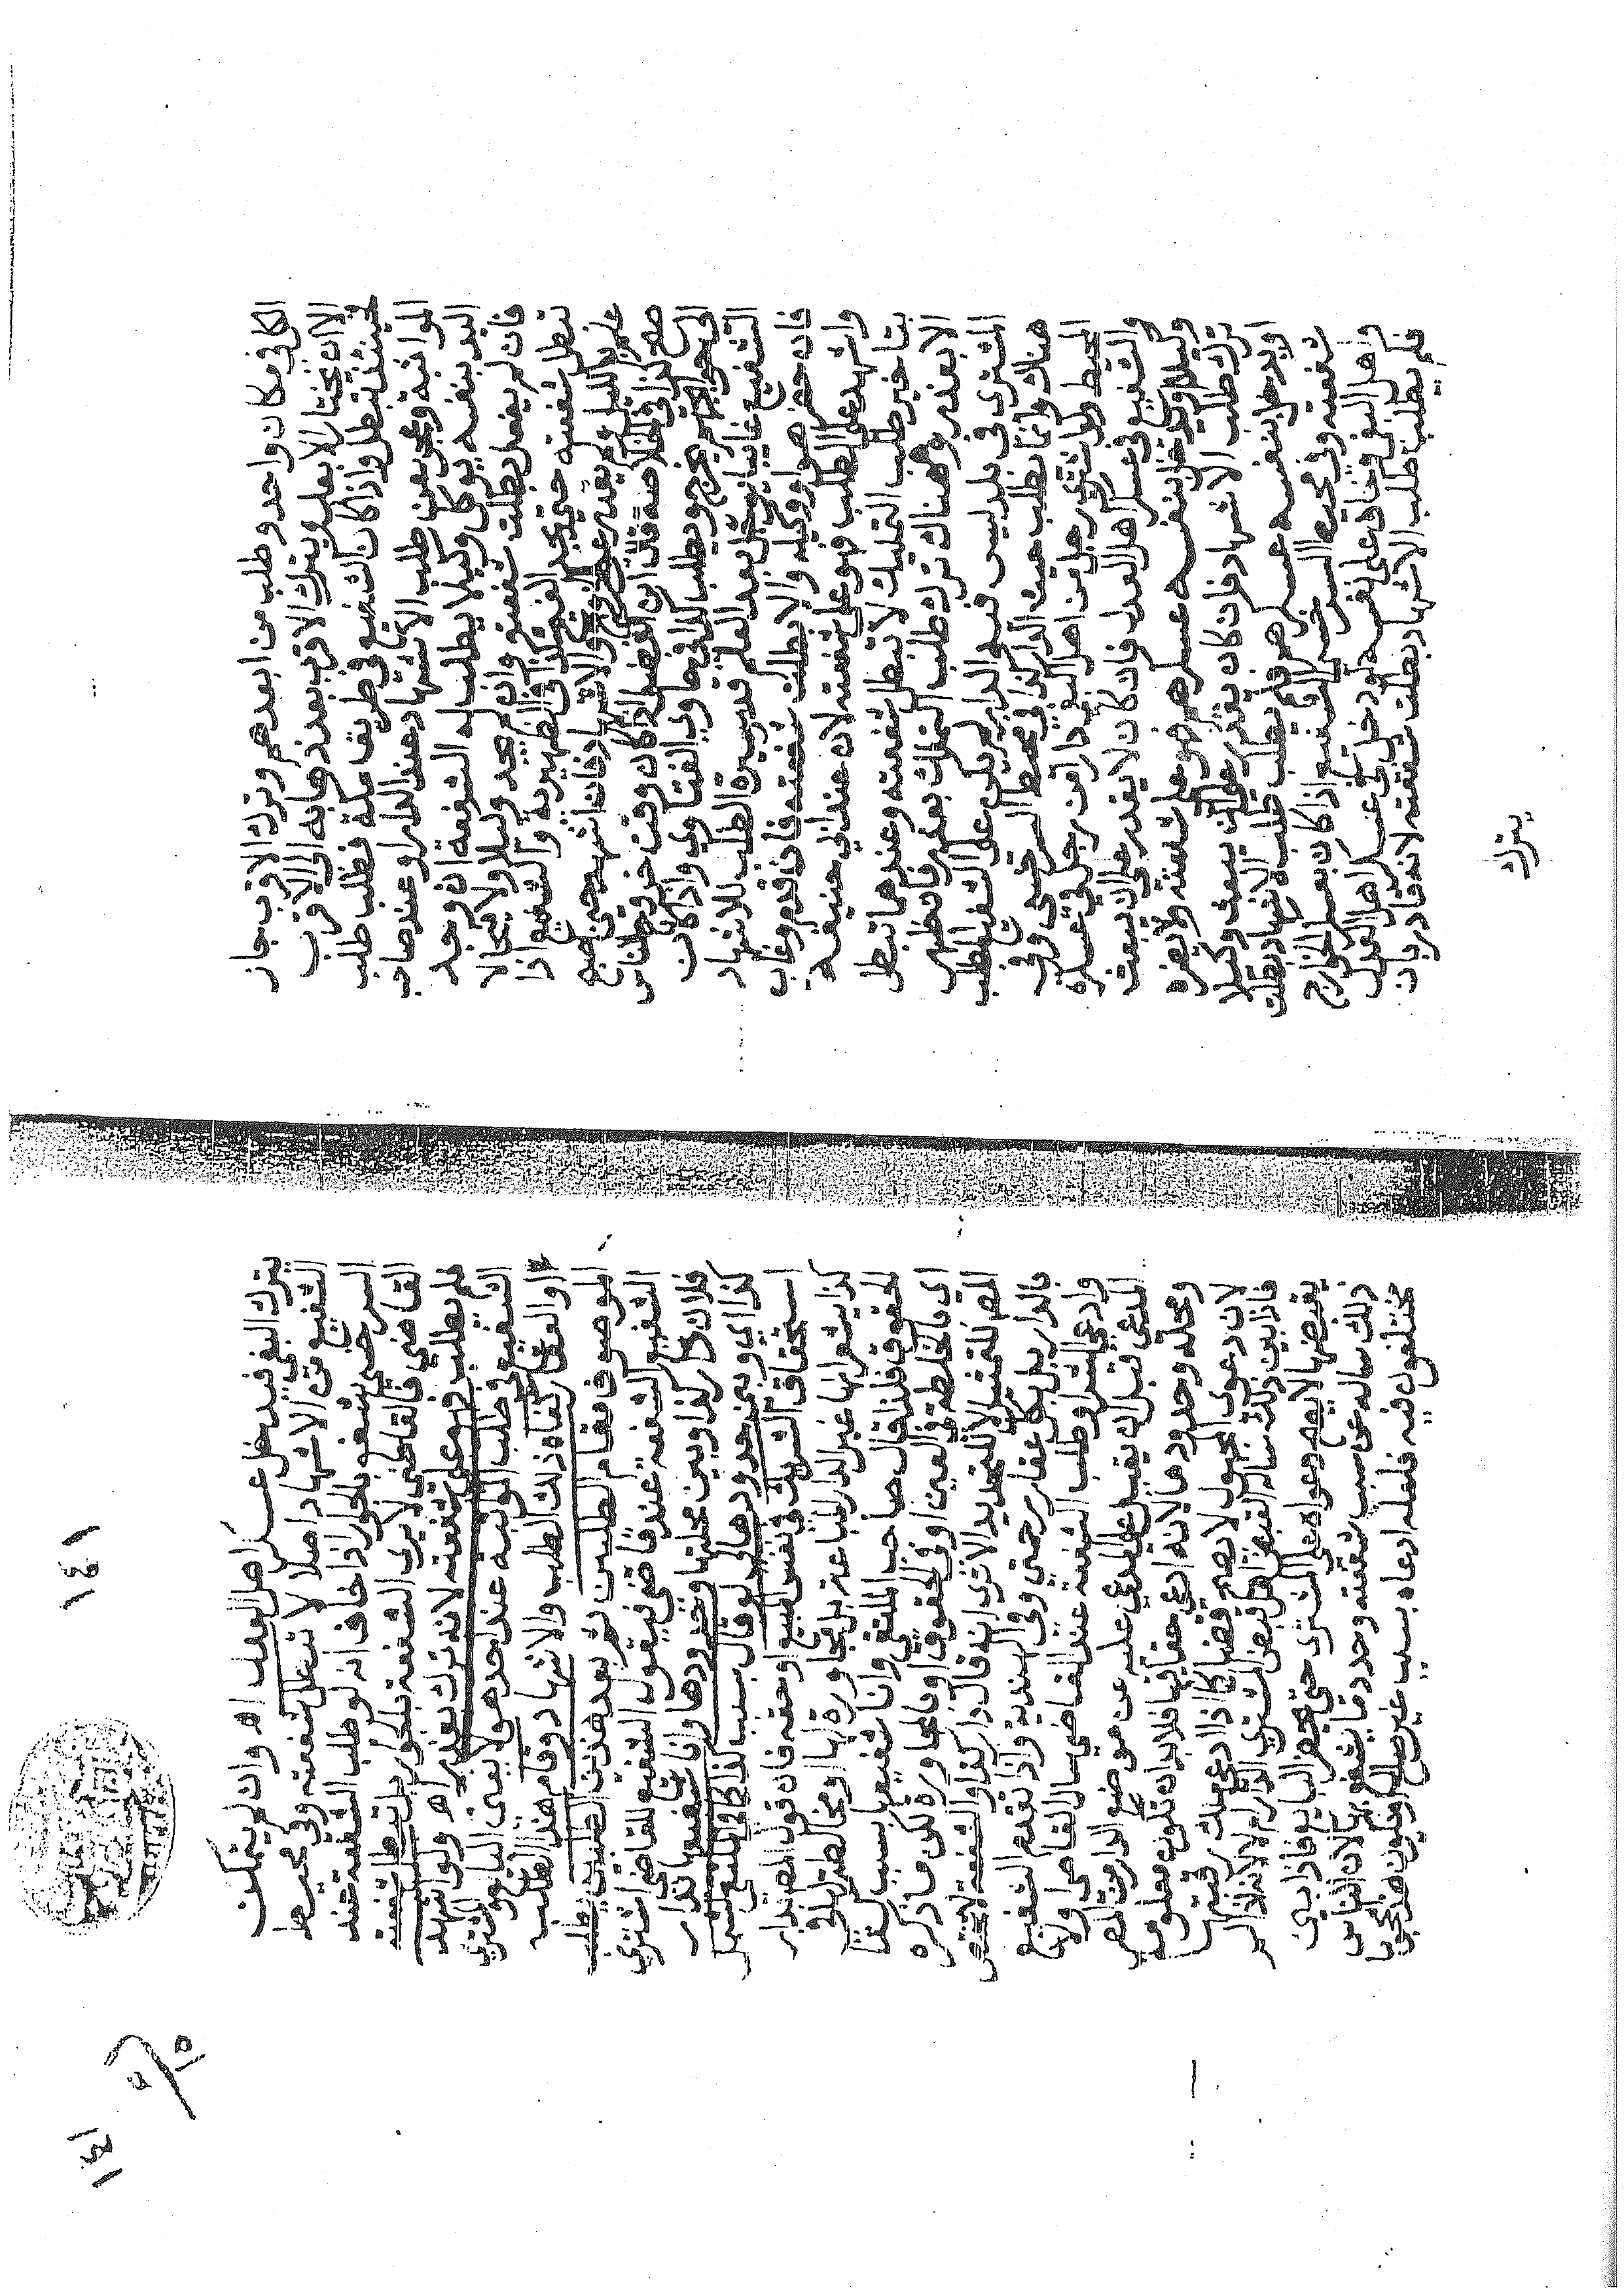 الكل في مكان واحد وطلب من ابعدهم وترك الاقرب جاز
الا ان يجتاز الابعد ويترك الاقرب بعد ذهابه الى الاقرب
فحينئذ تبطل واذا كان الشفيع في طريق مكة فطلب طلب
المواثبة وعجز عن طلب الاشهاد عند الدار او عند صاحب
اليد بنفسه يوكل وكيلا يطلب له الشفعة ان وجد
فان لم يفعل بطلت شفعته وان لم يجد وكيلا ولا فيجا لا
تبطل شفعته حتى يجد الفيج كذا في الظهيرية والشفيع اذا
علم بالليل ولم يقدر على الخروج والاشهاد فان اشهد حين اصبح
صح كذا في الخلاصة قال ابن الفضل اذا كان وقت خروج الناس
الى حوائجهم يخرج ويطلب كذا في حاوي الفتاوي واذا كان
الشفيع غايبا يؤجل بعد العلم قدر مسيرة الطلب للاشهاد
فان حضر هو او وكيله والا بطلت شفعته فان قدم وغاب
واشهد على الطلب فهو على شفعته لان عند ابي حنيفة
بتاخير طلب التمليك لا تبطل شفعته وعندهما تبطل
الا بعذر وهناك ترك طلب التملك بعذر فان ظهر
المشتري في بلد ليس فيه الدار ليس على الشفيع الطلب
هناك وانما يطلب حيث الدار كذا في محيط السرخسي وفي
المحيط ولو اشترى رجل من اهل البغي دارا من رجل في عسكره
والشفيع في عسكر اهل العدل فان كان لا يقدر على ان يبعث
وكيلا ولا ان يدخل بنفسه عسكرهم فهو على شفعته ولا يضره
ترك طلب الاشهاد فان كان يقدر على ان يبعث وكيلا
او يدخل بنفسه عسكرهم فلم يطلب طلب الاشهاد بطلت
شفعته وفي محيط السرخسي الشفيع اذا كان بعسكر الخوارج
واهل البغي فخاف على نفسه لو دخل في عسكر اهل العدل
فلم يطلب طلب الاشهاد بطلت شفعته لانه قادر بان
يترك
١٤١
يترك البغي فيدخل عسكر اهل العدل اه وان لم يتمكن
الشفيع من الاشهاد اصلا لا تبطل شفعته وفي محيط
السرخسي شفيع بالجوار اذا خاف انه لو طلب الشفعة عند
القاضي فالقاضي لا يرى الشفعة بالجوار بانه يبطل شفعته
فلم يطلب فهو على شفعته لانه ترك بعذر اه ولو اشهد
الشفيع في طلب المواثبة عند احد هولا يعني البايع والمشتري
او العقار كفاه ذلك الطلب والاشهاد وقام هذا الطلب
الموصوف مقام الطلبين ثم بعد هذين الطلبين يطلب
الشفيع الشفعة عند قاضي فيقول الشفيع للقاضي اشترى
فلان دار كذا ويبين محلتها وحدودها وانا شفيعها بدار
كذا لي ويبين حدودها ولو قال بسبب كذا كما في الملتقى لشمل
استحقاق الشريك في نفس المبيع او حقه فان قول المص بدار
كذا يشعر انها غير الدار المباعة بل مجاورة لها او مخالطتها في
الحقوق فلذا قال صاحب الملتقى وانا شفيعها بسبب كذا
اي بالخلطة في العين او في الحقوق او بالمجاورة لكن ما ذكره
المص للتمثيل لا للتحديد الا ترى انه قال دار كذا والشفعة لا تختص
بالدار بل بكل عقار رحتي وفي الهندية واذا تقدم الشفيع
وادعى الشراء وطلب الشفعة عند القاضي سال القاضي اولا
المدعي قبل ان يقبل على المدعي عليه عن موضع الدار من المصر
ومحلته وحدودها لانه ادعى حقا فيها فلابد ان تكون معلومة
لان دعوى المجهول لا تصح فصار كما اذا ادعى ملك رقبتها
فاذا بين ذلك ساله هل قبض المشتري الدار ام لا لانه اذا لم
يقبضها لا يصح دعواه على المشتري حتى يحضر البايع فاذا بين
ذلك ساله عن سبب شفعته وحدود ما يشفع بها لان الناس
مختلفون فيه فلعله ادعاه بسبب غير صالح او يكون هو محجوبا
١٤١